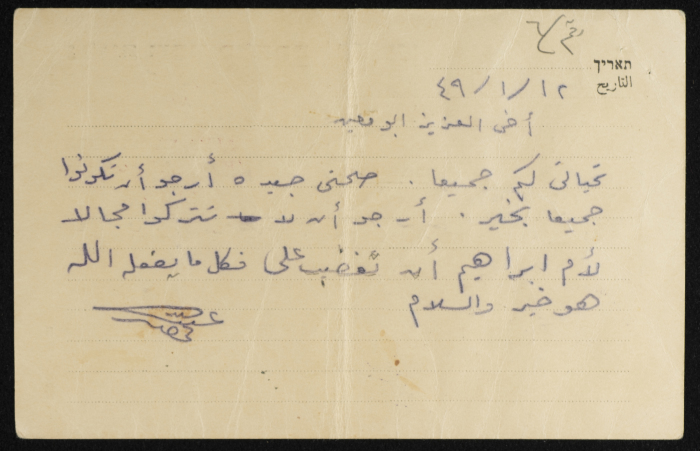 תאריך
التاريخ
٤٩/١/١٢
أخي العزيز ابو
تحياتي لكم جميعا . صحتي جيدة أرجو أن تكونوا
جميعا بخير . أرجو أن لا تتركوا مجالا
لأم ابراهيم أن تغضب على فكل ما يفعله الله
هو خير والسلام